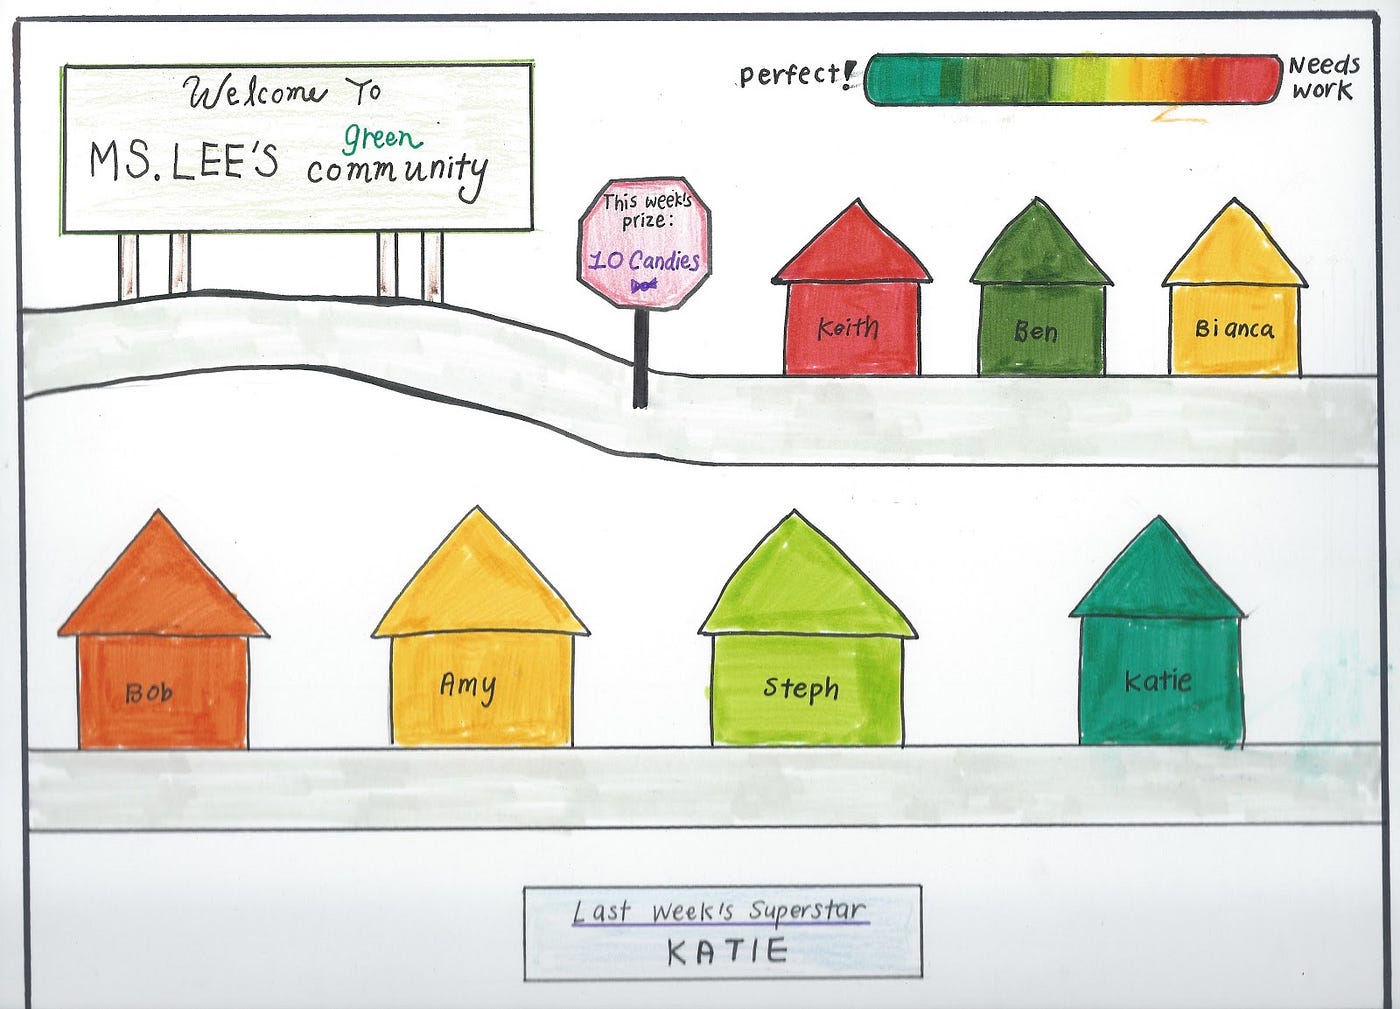 Welcome To
MS. LEE'S green community
perfect!
Needs work
This week's
prize:
10 Candies
Keith
Ben
Bianca
Bob
Amy
Steph
Katie
Last Week's Superstar
KATIE